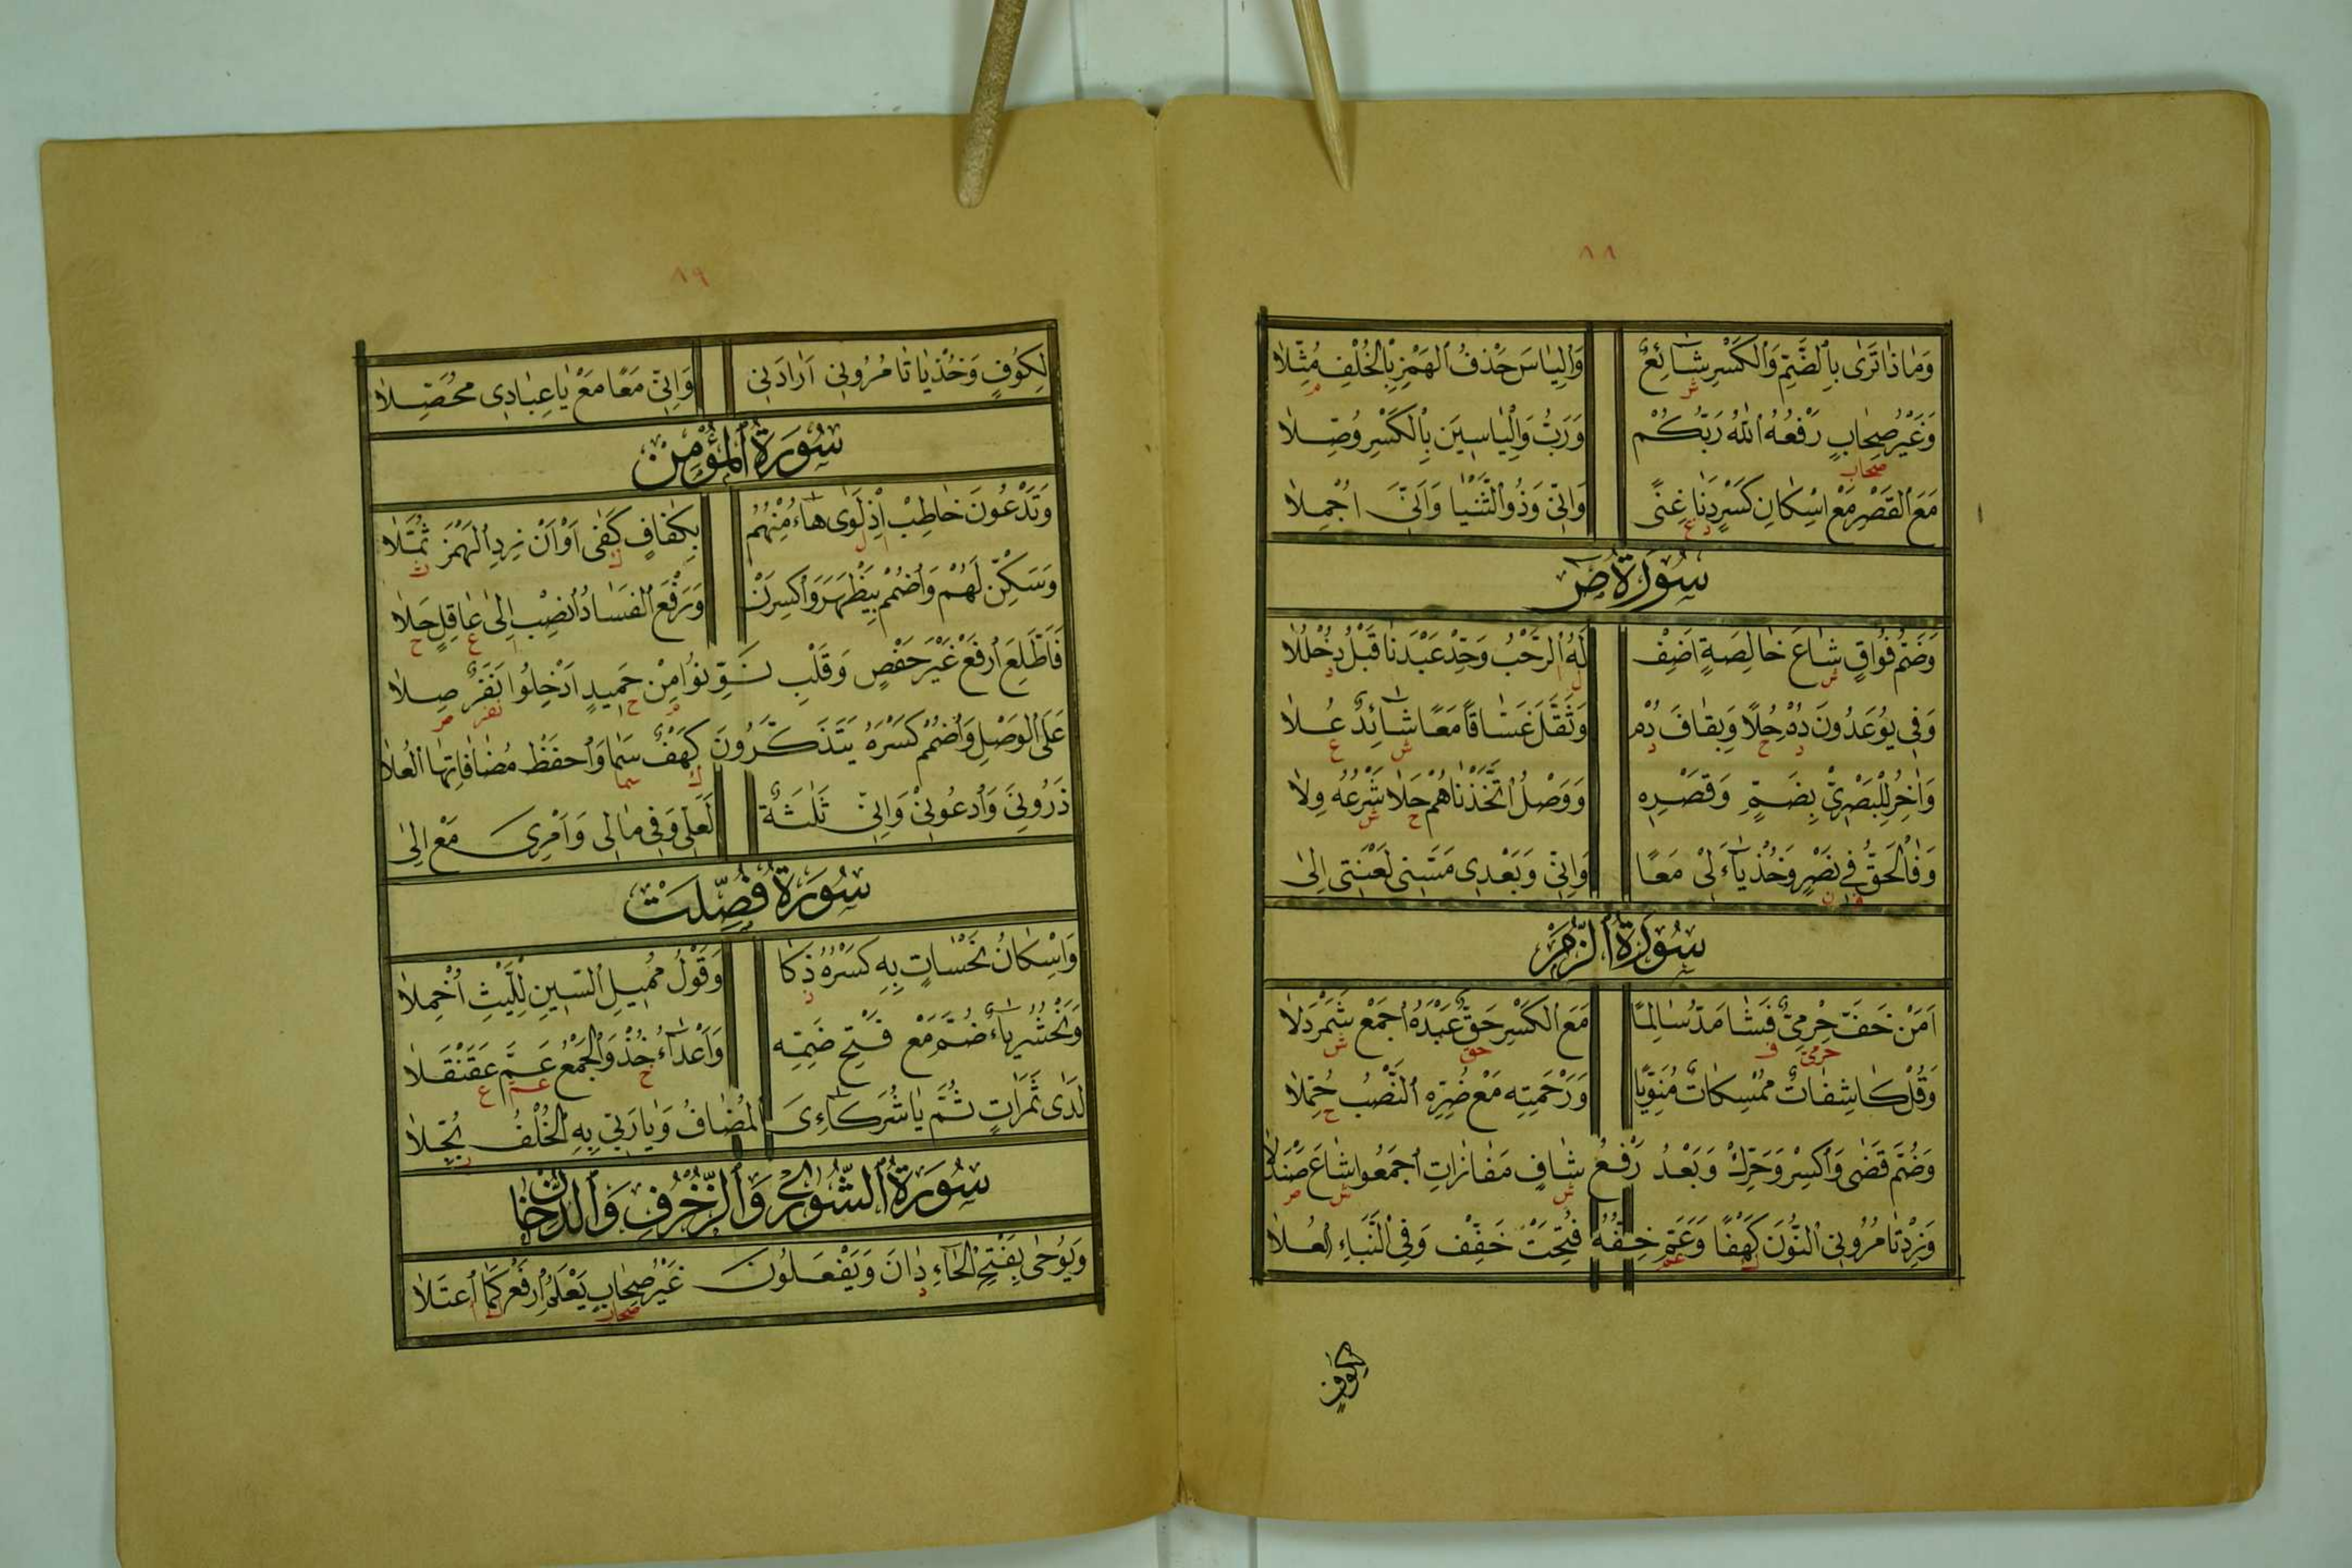 ٨٨
وَمَاذَا تَرَى بِالضَّمِّ وَالْكَسْرِ شَائِعٌ وَإِلْيَاسَ حَذْفُ الْهَمْزِ بِالْخُلْفِ مُثِّلَا
ش م
وَغَيْرُ صِحَابٍ رَفْعُهُ اللهُ رَبُّكُمْ وَرَبُّ وَإِلْيَاسِينَ بِالْكَسْرِ وُصِّلَا
صحاب
مَعَ الْقَصْرِ مَعْ اِسْكَانِ كَسْرٍ دَنَا غِنًى وَاِنِّي وَذُو الثُّنْيَا وَاَنِّيَ اُجْمِلَا
د غ
سُورَةُ صٓ
وَضَمُّ فُوَاقٍ شَاعَ خَالِصَةٍ اَضِفْ لَهُ الرَّحْبُ وَحِّدْ عَبْدَنَا قَبْلُ دُخْلُلَا
ش ل ا د
وَفِي يُوعَدُونَ دُمْ حُلًا وَبِقَافَ دُمْ وَثَقِّلْ غَسَاقًا مَعًا شَائِدٌ عُلَا
د ح د ش ع
وَاٰخِرُ لِلْبَصْرِيِّ بِضَمٍّ وَقَصْرِهِ وَوَصْلُ اتَّخَذْنَاهُمْ حَلَا شَرْعُهُ وِلَا
ح ش
وَفَالْحَقُّ فِي نَصْرٍ وَخُذْ يَاءَ لِي مَعًا وَاِنِّي وَبَعْدِي مَسَّنِي لَعْنَتِي اِلَى
ف ن
سُورَةُ الزُّمَرْ
اَمَنْ خَفَّ حِرْمِيٌّ فَشَا مَدَّ سَالِمًا مَعَ الْكَسْرِ حَقٌّ عَبْدَهُ اجْمَعْ شَمَرْدَلَا
حرمي ف حق ش
وَقُلْ كَاشِفَاتٌ مُمْسِكَاتٌ مُنَوِّنًا وَرَحْمَتِهِ مَعْ ضُرِّهِ النَّصْبُ حُمِّلَا
ح
وَضُمَّ قَضَى وَاكْسِرْ وَحَرِّكْ وَبَعْدُ رَفْعُ شَافٍ مَفَازَاتِ اجْمَعُوا شَاعَ صَنْدَلَا
ش ش ص
وَزِدْ تَأْمُرُونِي النُّونَ كَهْفًا وَعَمَّ خِفُّهُ فُتِحَتْ خَفِّفْ وَفِي النَّبَإِ الْعُلَا
ك عم
لِكُوفٍ
٨٩
لِكُوفٍ وَخُذْ يَا تَأْمُرُونِي اَرَادَنِي وَاِنِّي مَعًا مَعْ يَا عِبَادِي مُحَصِّلَا
سُورَةُ الْمُؤْمِنْ
وَتَدْعُونَ خَاطِبْ اِذْ لَوَى هَاءُ مِنْهُمْ بِكَافٍ كَفَى اَوْ اَنْ زِدِ الْهَمْزَ ثُمَّلَا
ا ل ك ث
وَسَكِّنْ لَهُمْ وَاضْمُمْ بِيَظْهَرَ وَاكْسِرَنْ وَرَفْعَ الْفَسَادُ انْصِبْ اِلَى عَاقِلٍ حَلَا
ا ع ح
فَاَطَّلِعَ ارْفَعْ غَيْرَ حَفْصٍ وَقَلْبِ نَوِّنُوا مِنْ حَمِيدٍ اَدْخِلُوا نَفَرٌ صِلَا
م ح نفر ص
عَلَى الْوَصْلِ وَاضْمُمْ كَسْرَهُ يَتَذَكَّرُونَ كَهْفٌ سَمَا وَاحْفَظْ مُضَافَاتِهَا الْعُلَا
ك سما
ذَرُونِي وَادْعُونِي وَاِنِّي ثَلٰثَةٌ لَعَلِّي وَفِي مَالِي وَاَمْرِيَ مَعْ اِلَى
سُورَةُ فُصِّلَتْ
وَاِسْكَانُ نَحْسَاتٍ بِهِ كَسْرُهُ ذَكَا وَقَوْلُ مُمِيلِ السِّينِ لِلَّيْثِ اُخْمِلَا
ذ
وَنَحْشُرُ يَاءٌ ضُمَّ مَعْ فَتْحِ ضَمِّهِ وَاَعْدَاءُ خُذْ وَالْجَمْعُ عَمَّ عَقَنْقَلَا
خ عم ع
لَدَى ثَمَرَاتٍ ثُمَّ يَا شُرَكَائِيَ الْمُضَافُ وَيَا رَبِّي بِهِ الْخُلْفُ بُجِّلَا
ب
سُورَةُ الشُّورٰى وَالزُّخْرُفِ وَالدُّخَانْ
وَيُوحٰى بِفَتْحِ الْحَاءِ دَانَ وَيَفْعَلُونَ غَيْرُ صِحَابٍ يَعْلَمُ ارْفَعْ كَمَا اعْتَلَا
د صحاب ك ا